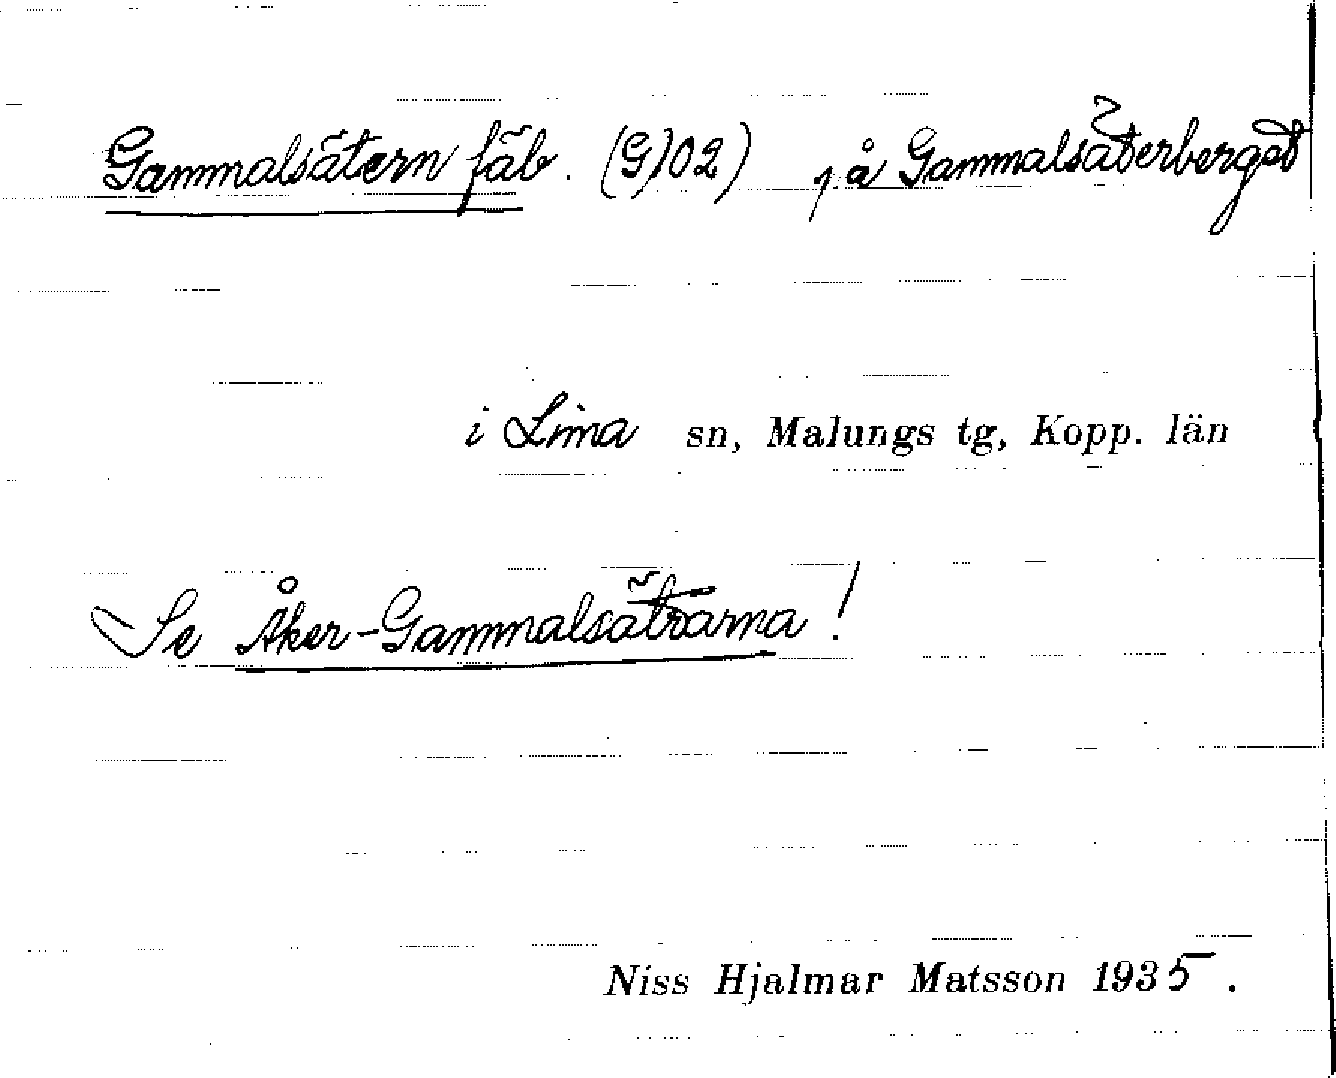 Gammalsätern fäb. (G)02) på Gammalsäterberget
i Lima sn, Malungs tg, Kopp. län
Se Åker-Gammalsätrarna!
Niss Hjalmar Matsson 1935.